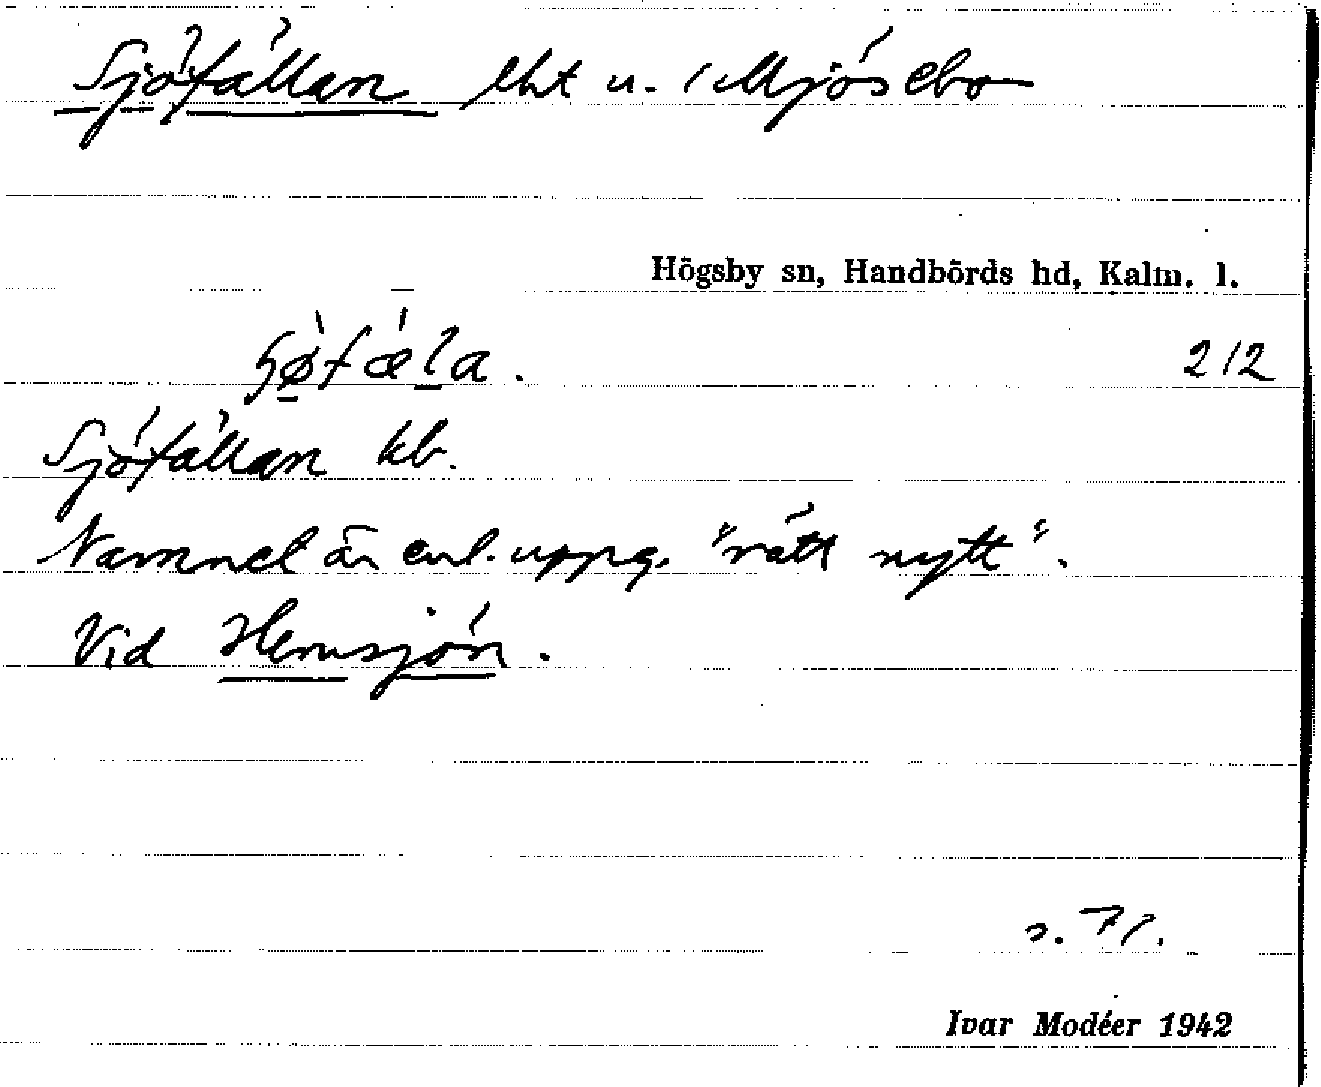 Sjöfällan lht u. Mjösebo
Högsby sn, Handbörds hd, Kalm. l.
212
Sjöfällan kb.
Namnet är enl. uppg. "rätt nytt".
Vid Hemsjön.
s. 71.
Ivar Modéer 1942